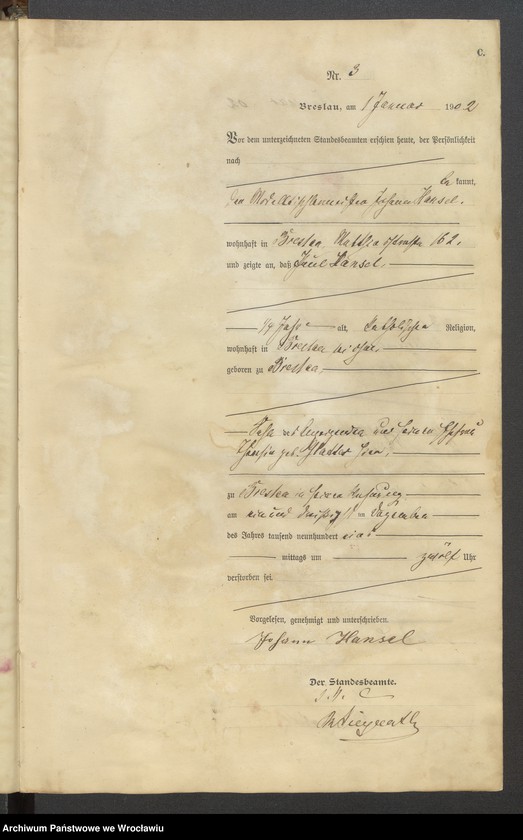 C.
Nr. 3
Breslau, am 1 Januar 1902
Vor dem unterzeichneten Standesbeamten erschien heute, der Persönlichkeit
nach
be kannt,
der Johann Hansel.
wohnhaft in Breslau, Matthiasstraße 162,
und zeigte an, daß Paul Hansel,
14 Jahre alt, katholischer Religion,
wohnhaft in Breslau bei ihm
geboren zu Breslau,
Sohn des Anzeigenden und seiner Ehefrau
geb.
zu Breslau in seiner Wohnung
am ein und dreißigsten Dezember
des Jahres tausend neunhundert eins
mittags um zwölf Uhr
verstorben sei.
Vorgelesen, genehmigt und unterschrieben.
Johann Hansel
Der Standesbeamte.
Archiwum Państwowe we Wrocławiu